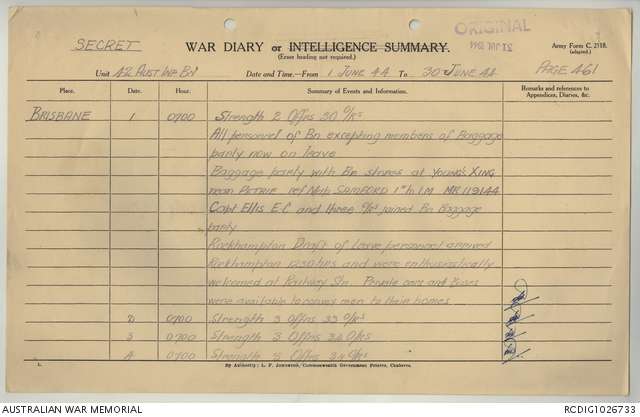 ORIGINAL
SECRET
WAR DIARY or INTELLIGENCE SUMMARY.
(Erase heading not required.)
Army Form C. 2118.
(adapted.)
Unit 42 AUST INF BN Date and Time.—From 1 JUNE 44 To 30 JUNE 44 PAGE 461
Place. Date. Hour. Summary of Events and Information. Remarks and references to Appendices, Diaries, &c.
BRISBANE 1 0700 Strength 2 Offrs 30 O/Rs
All personnel of Bn excepting members of Baggage
party now on leave
Baggage party with Bn stores at YOUNG'S XING
near PETRIE ref Map SAMFORD 1" to 1M MR 119144
Capt Ellis E.C and three O/Rs joined Bn Baggage
party.
Rockhampton Draft of leave personnel arrived
Rockhampton 1230 hrs and were enthusiastically
welcomed at Railway Stn. Private cars and buses
were available to convey men to their homes.
2 0700 Strength 3 Offrs 33 O/Rs
3 0700 Strength 3 Offrs 34 O/Rs
4 0700 Strength 3 Offrs 34 O/Rs
1. By Authority: L. F. Johnston, Commonwealth Government Printer, Canberra.
AUSTRALIAN WAR MEMORIAL
RCDIG1026733